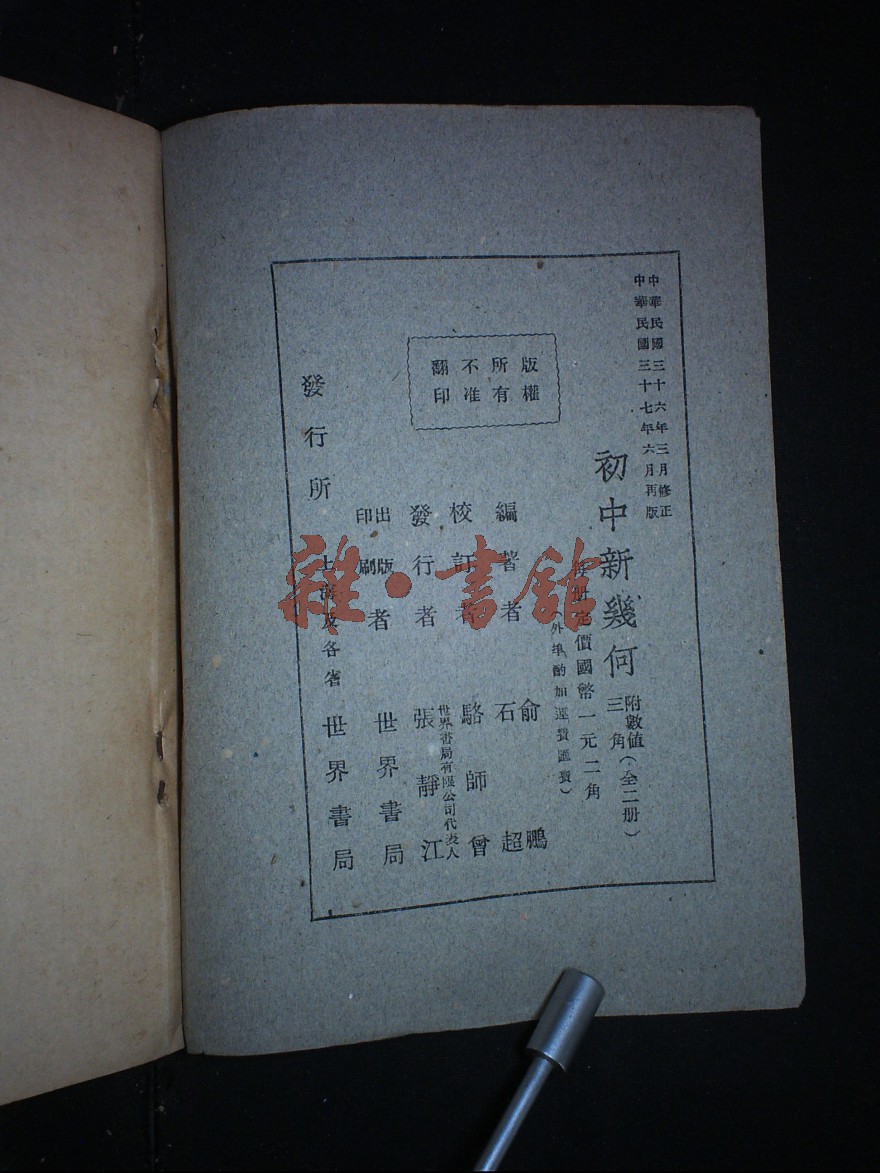 中華民國三十六年三月修正
中華民國三十七年六月再版
初中新幾何
附數值
三角(全二册)
册定價國幣一元二角
(外埠酌加運費匯費)
版權
所有
不准
翻印
編著者
俞鵬
石超
校訂者
駱師曾
發行者
世界書局有限公司代表人
張靜江
出版
印刷
者
世界書局
發行所
上海及各省
世界書局
雜·書館